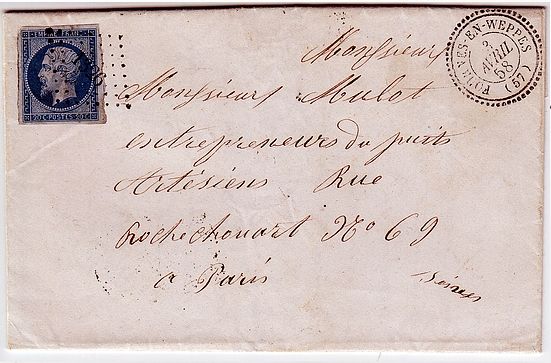 EMPIRE FRANC
20 C POSTES 20 C
FOURNES-EN-WEPPES
2
AVRIL
58
(57)
Monsieur
Monsieurs Mulot
entrepreneurs du puits
Artésiens Rue
Rochechouart No 69
a Paris